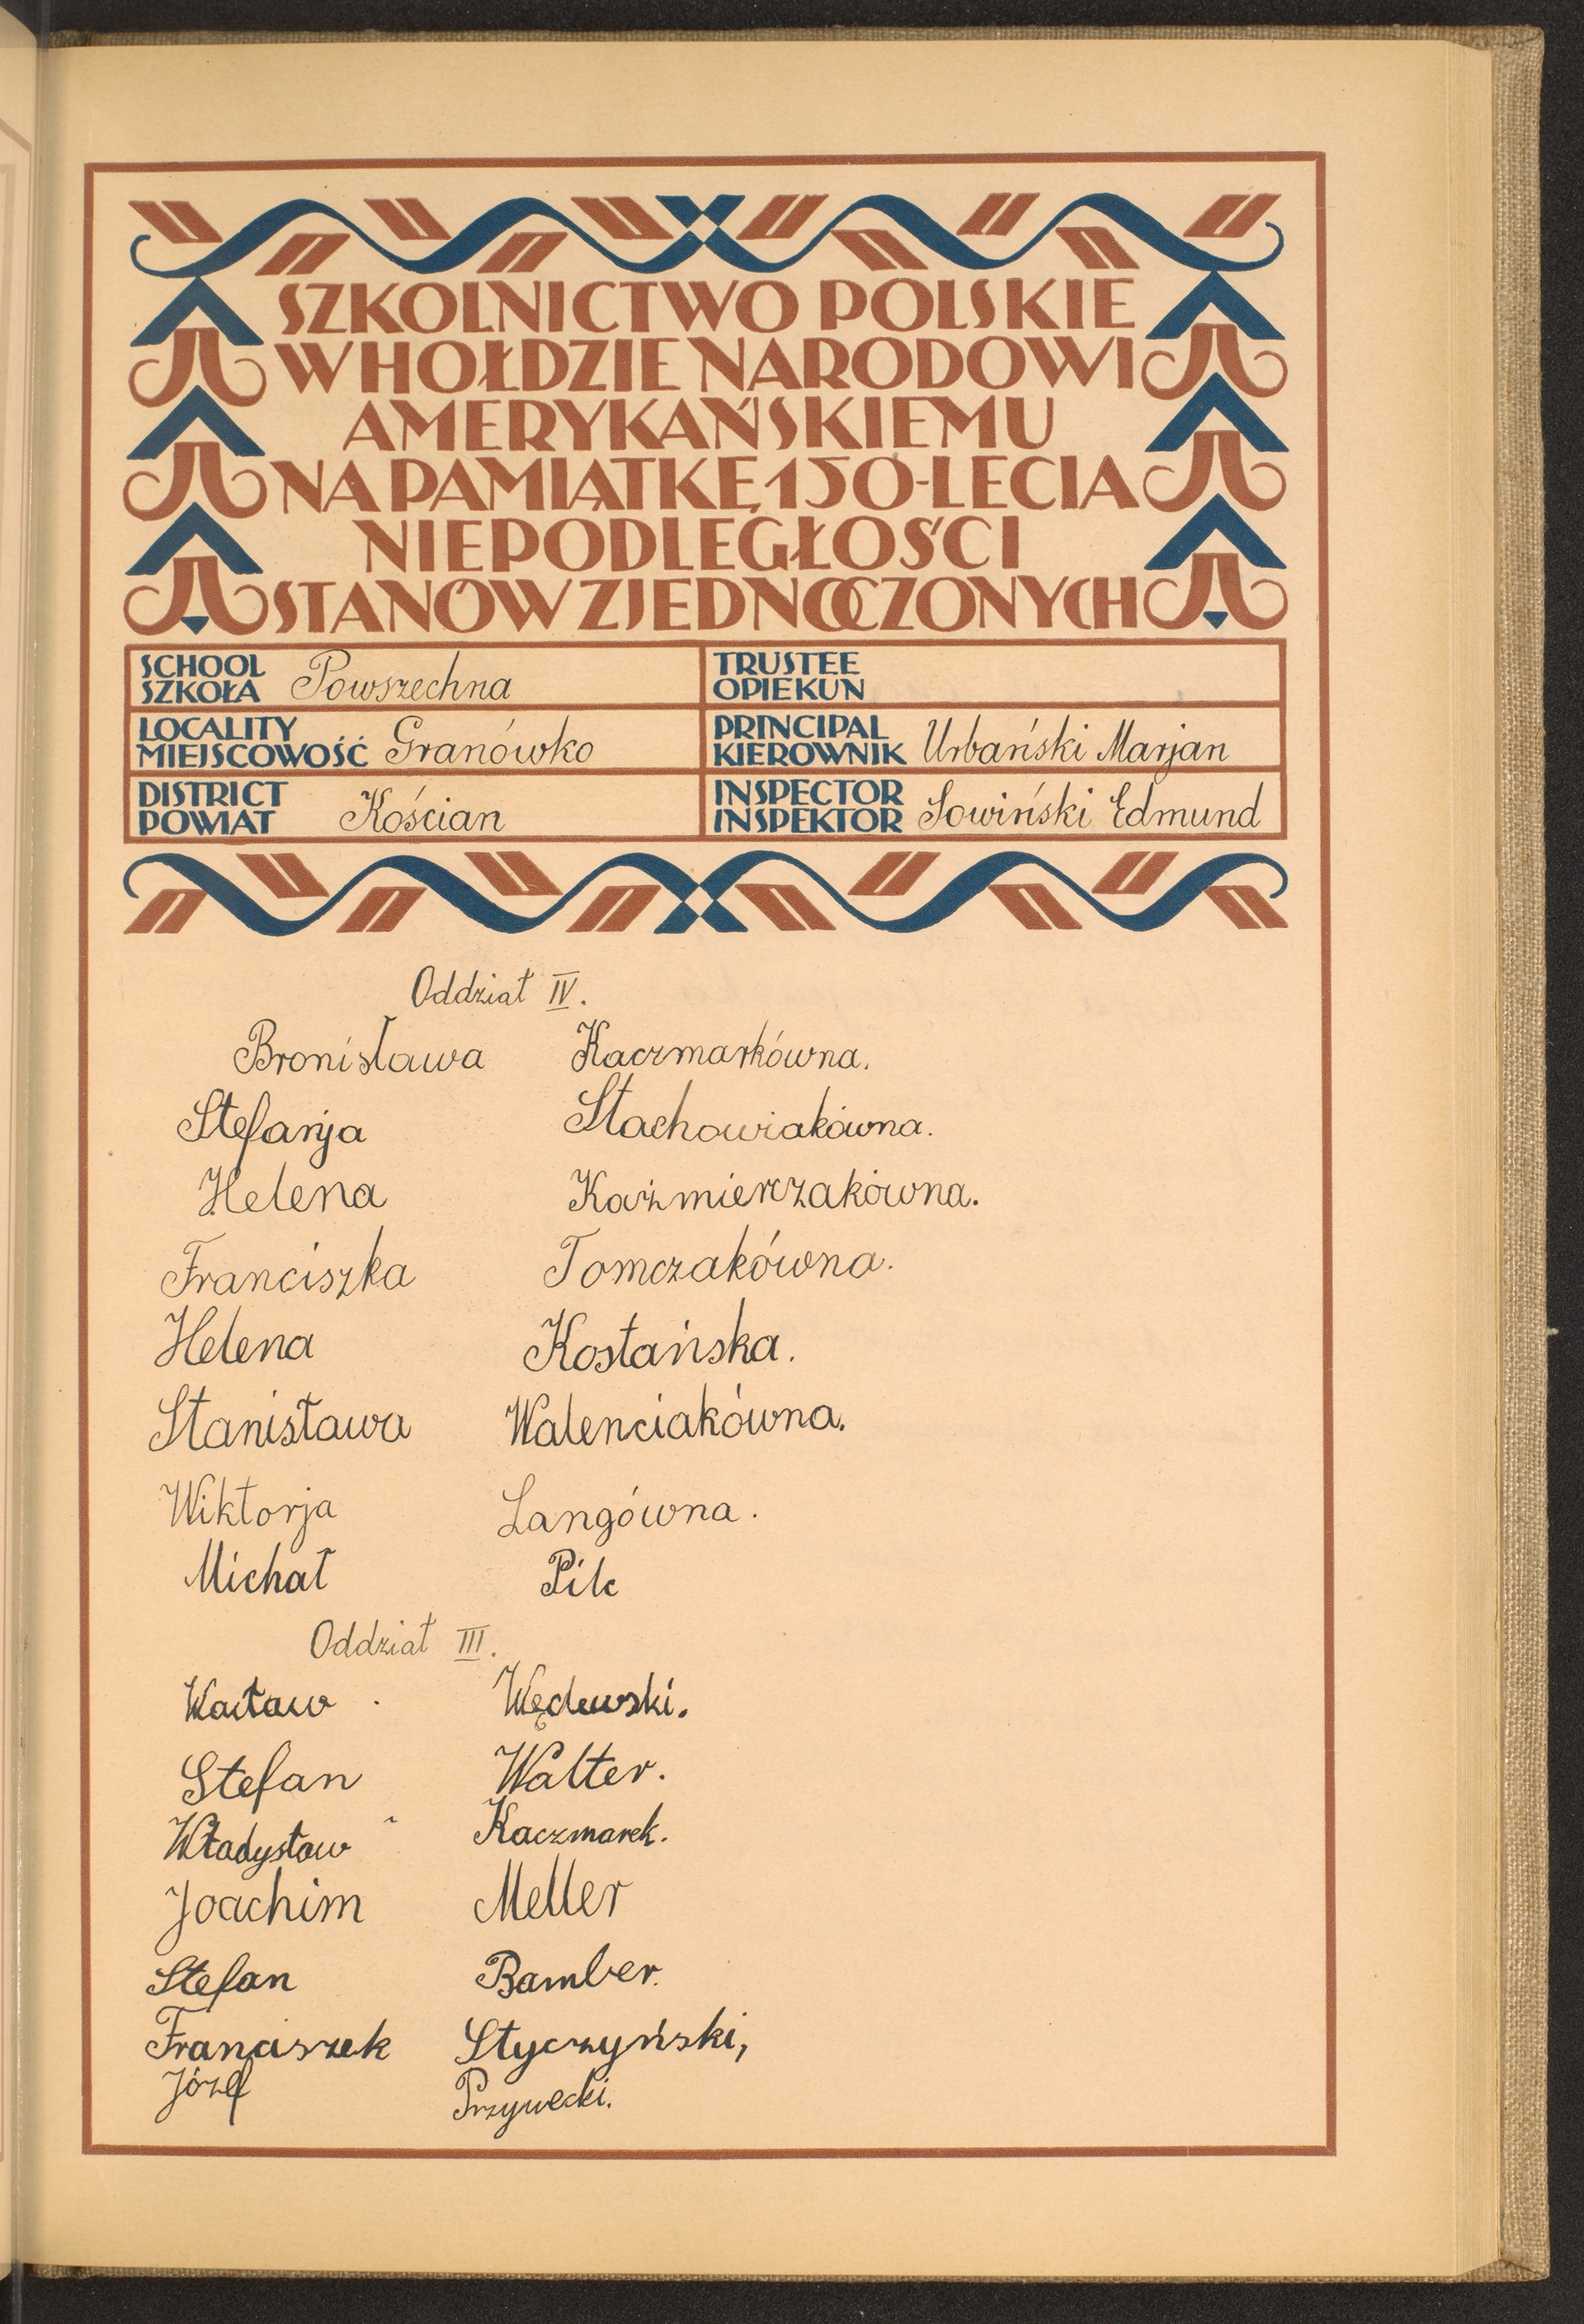 SZKOLNICTWO POLSKIE
W HOŁDZIE NARODOWI
AMERYKAŃSKIEMU
NA PAMIĄTKĘ 150-LECIA
NIEPODLEGŁOŚCI
STANÓW ZJEDNOCZONYCH
SCHOOL
SZKOŁA Powszechna
TRUSTEE
OPIEKUN
LOCALITY
MIEJSCOWOŚĆ Granówko
PRINCIPAL
KIEROWNIK Urbański Marjan
DISTRICT
POWIAT Kościan
INSPECTOR
INSPEKTOR Sowiński Edmund
Oddział IV.
Bronisława Kaczmarkówna.
Stefanja Stachowiakówna.
Helena Kaźmierczakówna.
Franciszka Tomczakówna.
Helena Kostańska.
Stanisława Walenciakówna.
Wiktorja Langówna.
Michał Pilc
Oddział III.
Wacław Węclewski.
Stefan Walter.
Władysław Kaczmarek.
Joachim Meller
Stefan Bamber.
Franciszek Styczyński,
Józef Przywecki.